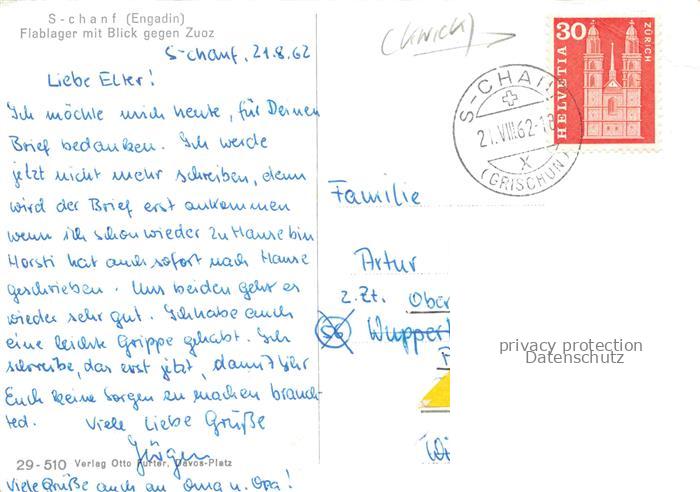 S-chanf (Engadin)
Flablager mit Blick gegen Zuoz
S-chanf, 21.8.62
Liebe Elter!
Ich möchte mich heute, für Deinen
Brief bedanken. Ich werde
jetzt nicht mehr schreiben, denn
wird der Brief erst ankommen
wenn ich schon wieder zu Hause bin
Horsti hat auch sofort nach Hause
geschrieben. Uns beiden geht es
wieder sehr gut. Ich habe auch
eine leichte Grippe gehabt. Ich
schreibe, das erst jetzt, damit Ihr
Euch keine Sorgen zu machen brauch-
ted. Viele Liebe Grüße
Jürgen
29-510 Verlag Otto Furter, Davos-Platz
Viele Grüße auch an Oma u. Opa!
30
HELVETIA
ZÜRICH
21.VIII.62-18
X
(GRISCHUN)
Familie
Artur
z. Zt. Ober
56 Wuppert
privacy protection
Datenschutz